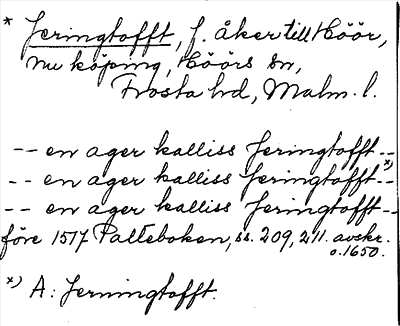 * Jeringtofft, f. åker till Höör,
nu köping, Höörs sn,
Frosta hd, Malm. l.
-- en ager kalliss Jeringtofft --
-- en ager kalliss Jeringtofft *) --
-- en ager kalliss Jeringtofft --
före 1517 Palteboken, ss. 209, 211. avskr.
o. 1650.
*) A: Jerningtofft.